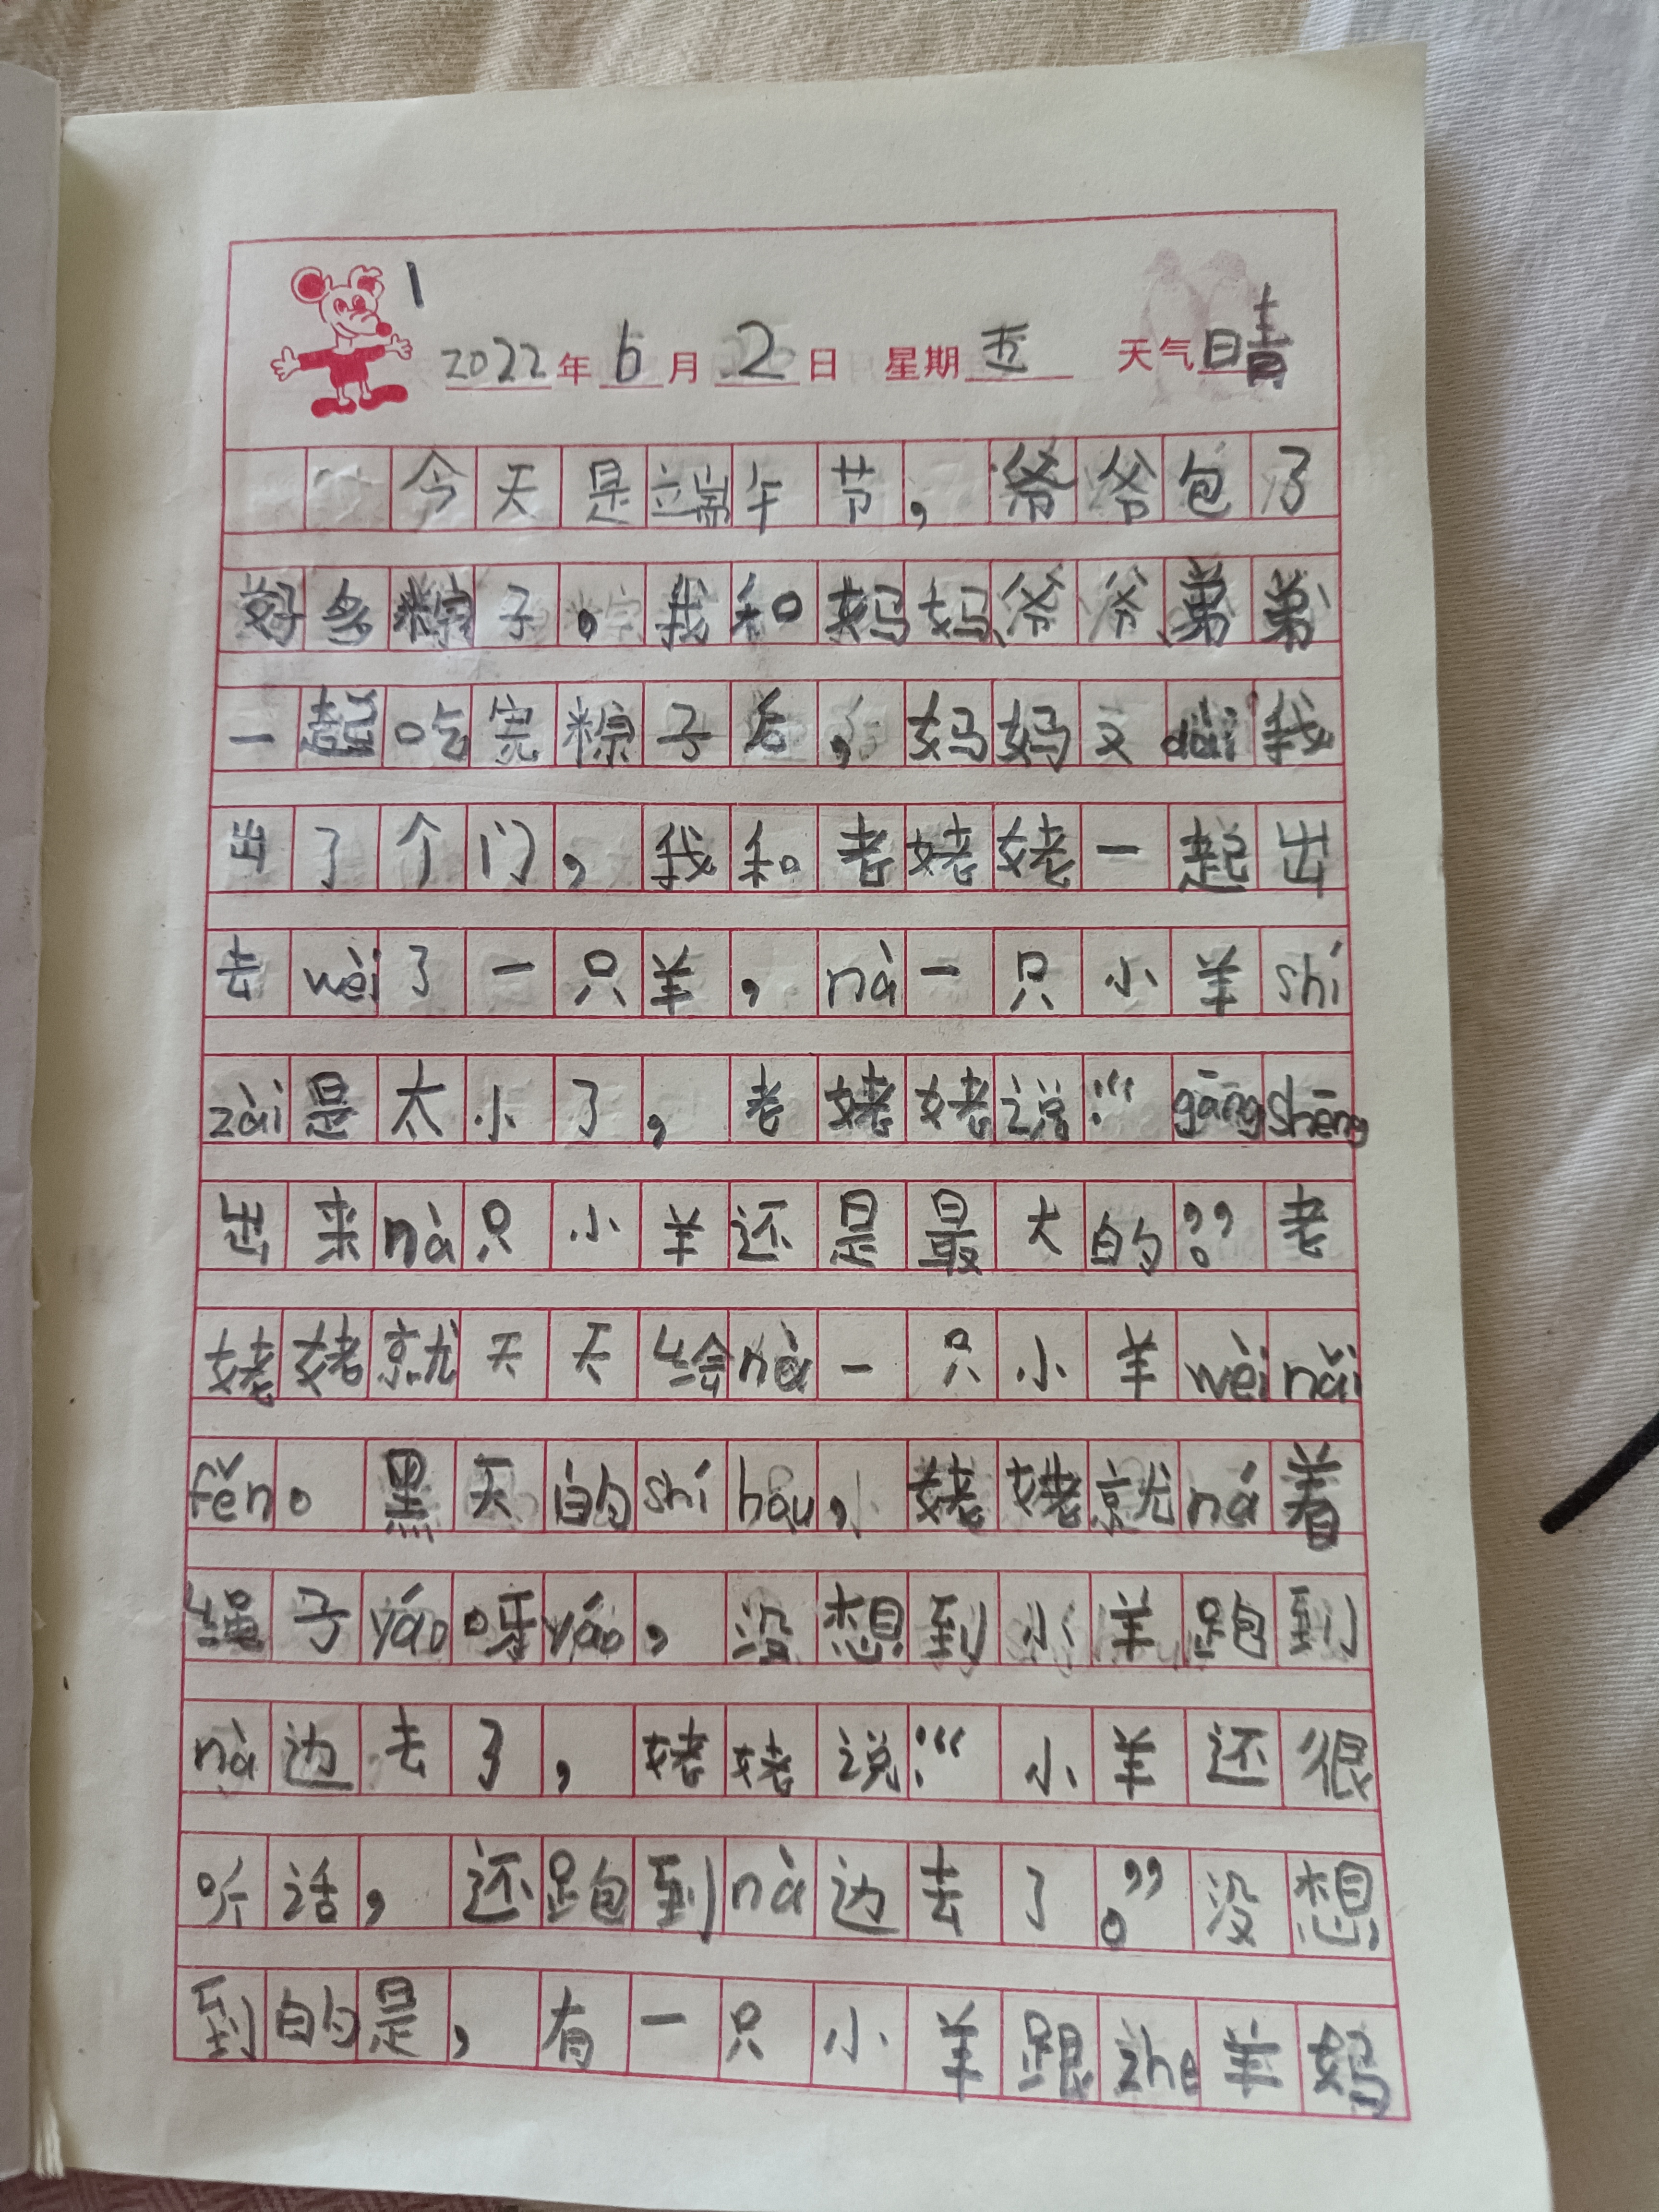 1
2022年6月2日 星期五 天气晴
今天是端午节，爷爷包了
好多粽子。我和妈妈、爷爷、弟弟
一起吃完粽子后，妈妈又dài我
出了个门，我和老姥姥一起出
去wèi了一只羊，nà一只小羊shí
zài是太小了，老姥姥说：“gāng shēng
出来nà只小羊还是最大的。”老
姥姥就天天给nà一只小羊wèi nǎi
fěn。黑天的shí hòu，姥姥就ná着
绳子yáo呀yáo，没想到小羊跑到
nà边去了，姥姥说：“小羊还很
听话，还跑到nà边去了。”没想
到的是，有一只小羊跟zhe羊妈